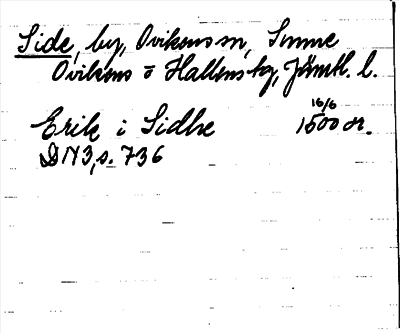 Side, by, Ovikens sn, Sunne
Ovikens o Hallens tg, Jämtl. l.
16/6
Erik i Sidhe 1500 or.
DN3, s. 736